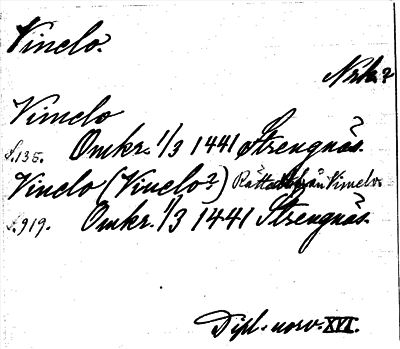 Vinclo.
Nrk.?
Vinclo
s.135. Omkr. 1/3 1441 Strengnäs.
Vinclo (Vinclo?) Rättat från Vimelo.
s.919. Omkr. 1/3 1441 Strengnäs.
Dipl. norv. XVI.